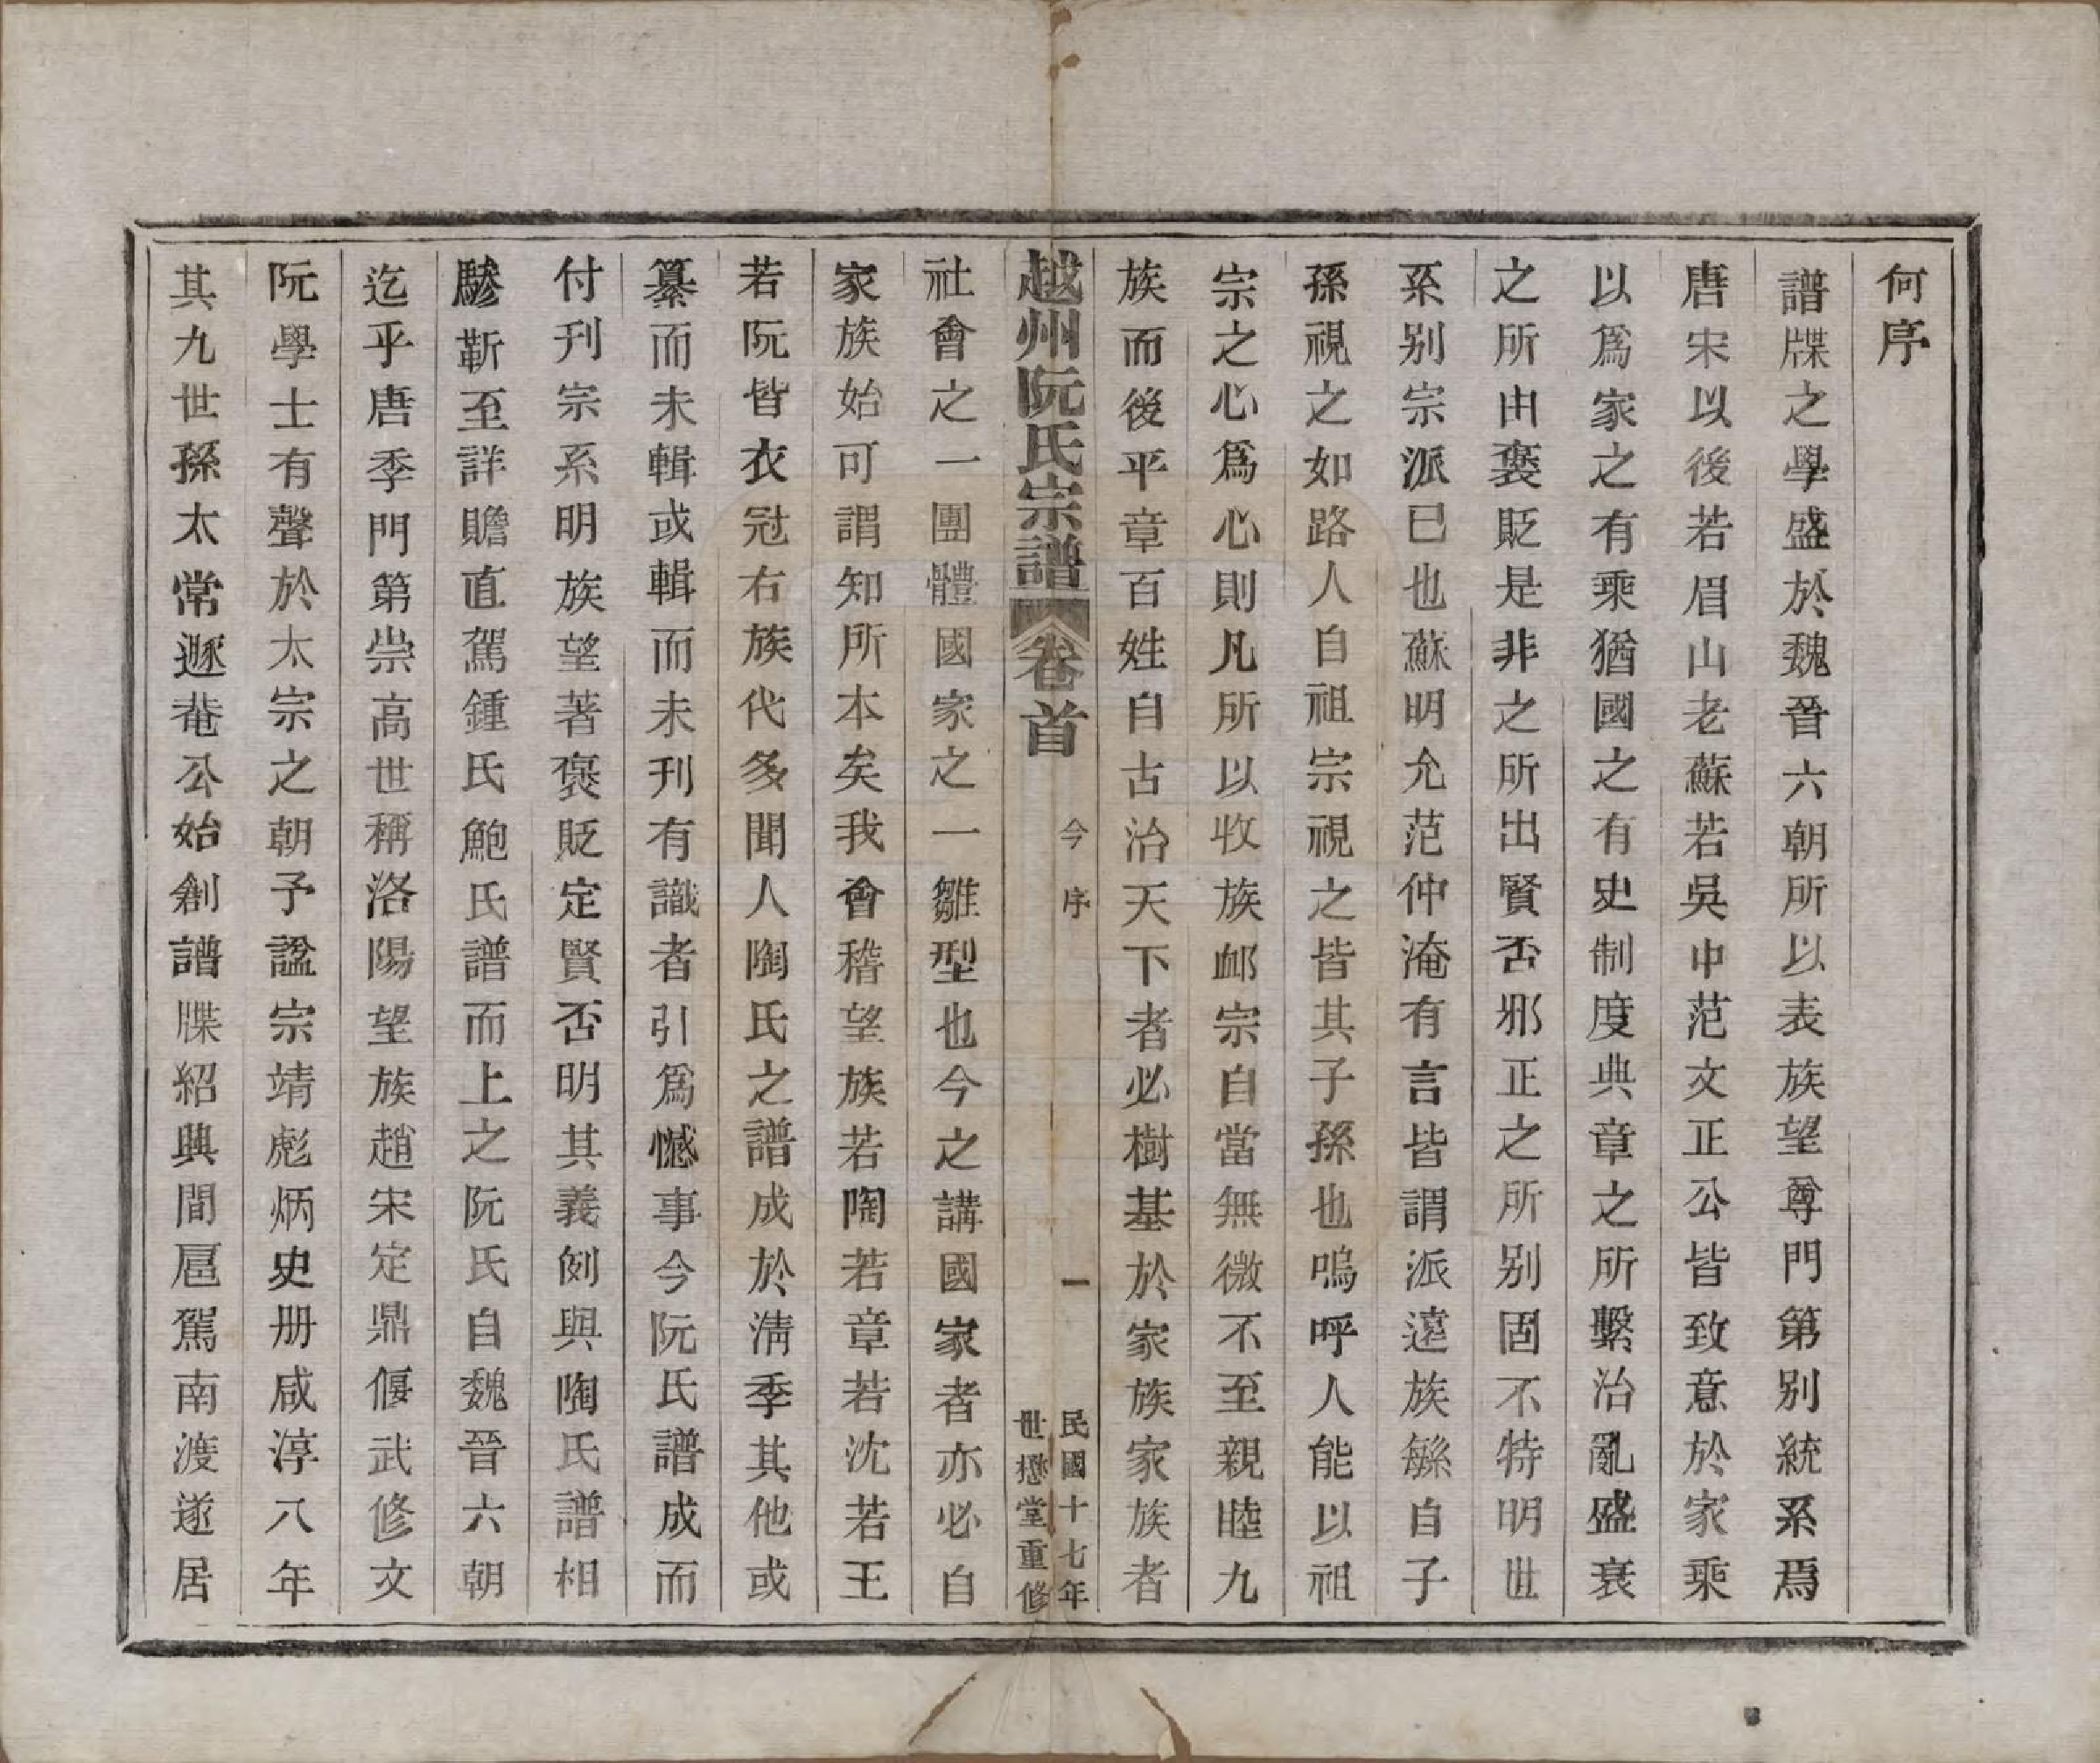 何序
譜牒之學盛於魏晉六朝所以表族望尊門第別統系焉
唐宋以後若眉山老蘇若吳中范文正公皆致意於家乘
以爲家之有乘猶國之有史制度典章之所繫治亂盛衰
之所由褒貶是非之所出賢否邪正之所别固不特明世
系别宗派已也蘇明允范仲淹有言皆謂派遠族緐自子
孫視之如路人自祖宗視之皆其子孫也嗚呼人能以祖
宗之心爲心則凡所以收族卹宗自當無微不至親睦九
族而後平章百姓自古治天下者必樹基於家族家族者
越州阮氏宗譜 卷首 今序 一 民國十七年 世懋堂重修
社會之一團體國家之一雛型也今之講國家者亦必自
家族始可謂知所本矣我會稽望族若陶若章若沈若王
若阮皆衣冠右族代多聞人陶氏之譜成於淸季其他或
纂而未輯或輯而未刊有識者引爲憾事今阮氏譜成而
付刊宗系明族望著褒貶定賢否明其義例與陶氏譜相
驂靳至詳贍直駕鍾氏鮑氏譜而上之阮氏自魏晉六朝
迄乎唐季門第崇高世稱洛陽望族趙宋定鼎偃武修文
阮學士有聲於太宗之朝予諡宗靖彪炳史册咸淳八年
其九世孫太常遯菴公始創譜牒紹興間扈駕南渡遂居